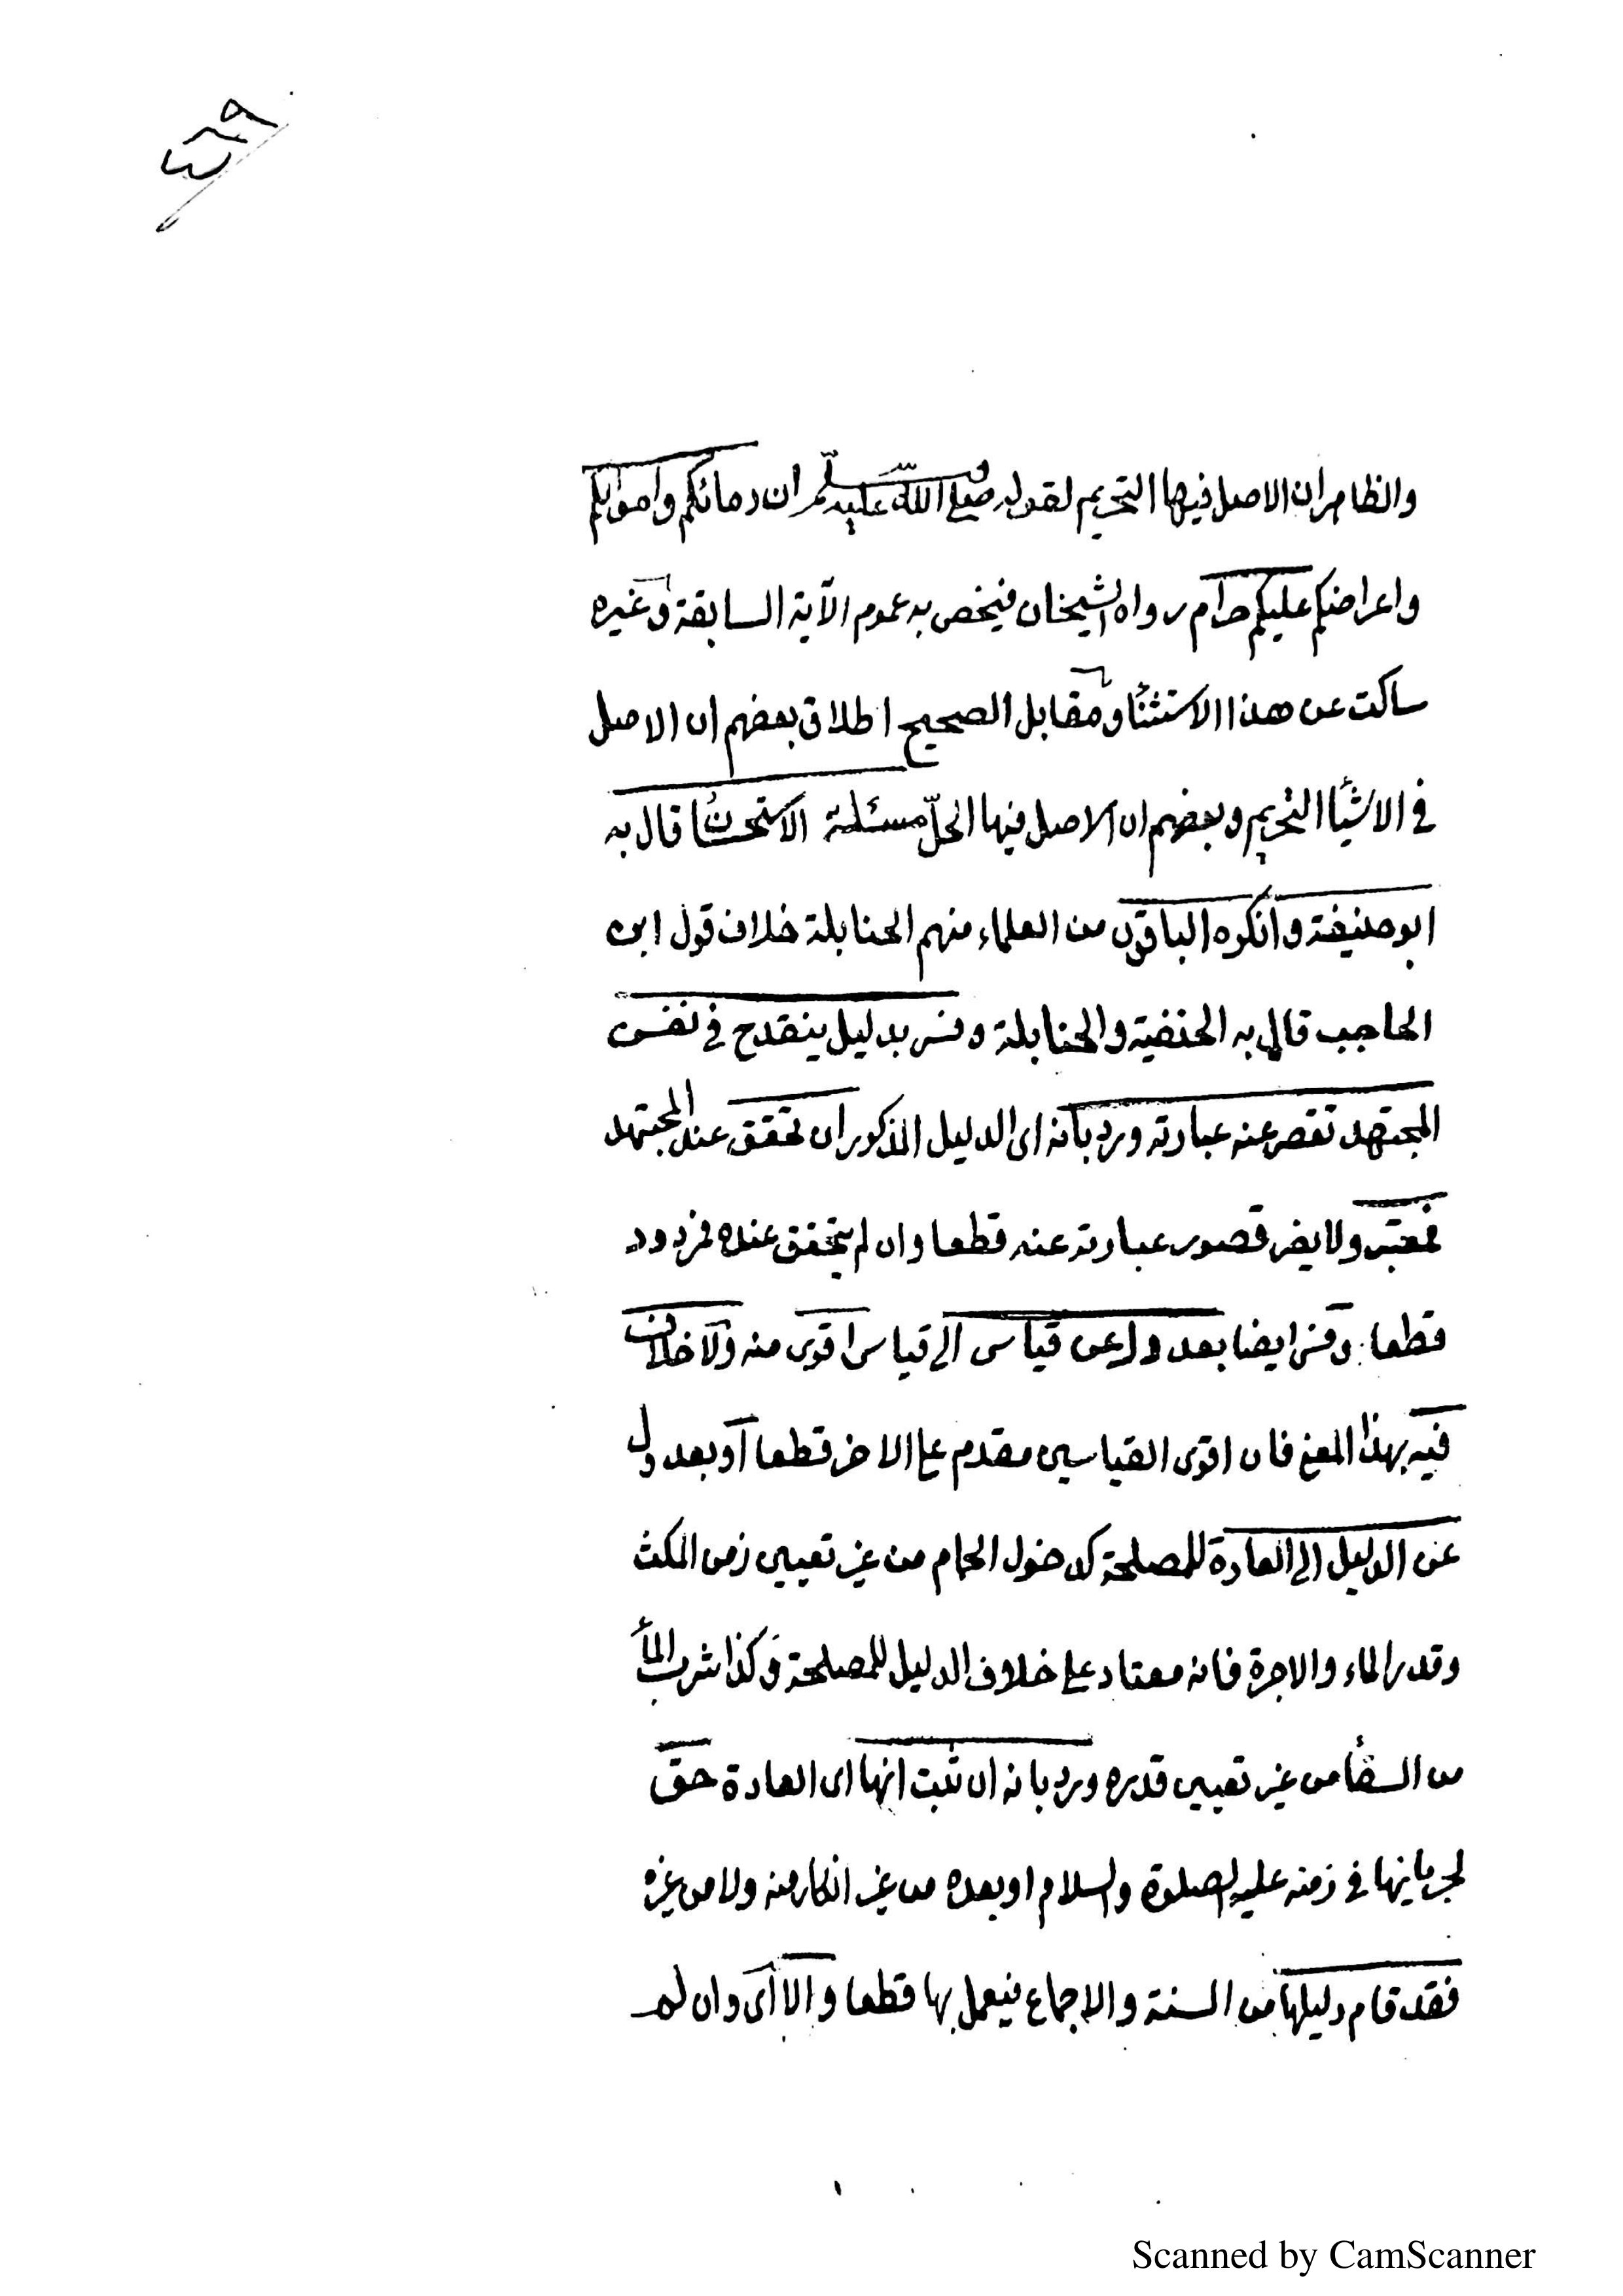 والظاهر ان الاصل فيها التحريم لقوله صلى الله عليه وسلم ان دمائكم واموالكم
واعراضكم عليكم حرام رواه الشيخان فيخص به عموم الآية السابقة وغيره
ساكت عن هذا الاستثنأ ومقابل الصحيح اطلاق بعضهم ان الاصل
في الاشيأ التحريم وبعضهم ان الاصل فيها الحلّ مسئلة الاستحسان قال به
ابو حنيفة وانكره الباقون من العلماء منهم الحنابلة خلاف قول ابن
الحاجب قال به الحنفية والحنابلة وفسر بدليل ينقدح في نفس
المجتهد تقصر عنه عبارته ورد بانه اى الدليل المذكور ان تحقق عند المجتهد
فمعتبر ولا يضر قصور عبارته عنه قطعا وان لم يتحقق عنده فمردود
قطعا وفسر ايضا بعدول عن قياس الى قياس اقوى منه ولا خلاف
فيه بهذا المعنى فان اقوى القياسين مقدم على الاخر قطعا او بعدول
عن الدليل الى العادة للمصلحة كدخول الحمام من غير تعيين زمن المكث
وقدر الماء والاجرة فانه معتاد على خلاف الدليل للمصلحة وكذا شرب المأ
من السقأ من غير تعيين قدره ورد بانه ان ثبت انها اى العادة حق
لجريانها في زمنه عليه الصلوة والسلام او بعده من غير انكار منه ولا من غيره
فقد قام دليلها من السنة والاجماع فيعمل بها قطعا والا اى وان لم
Scanned by CamScanner